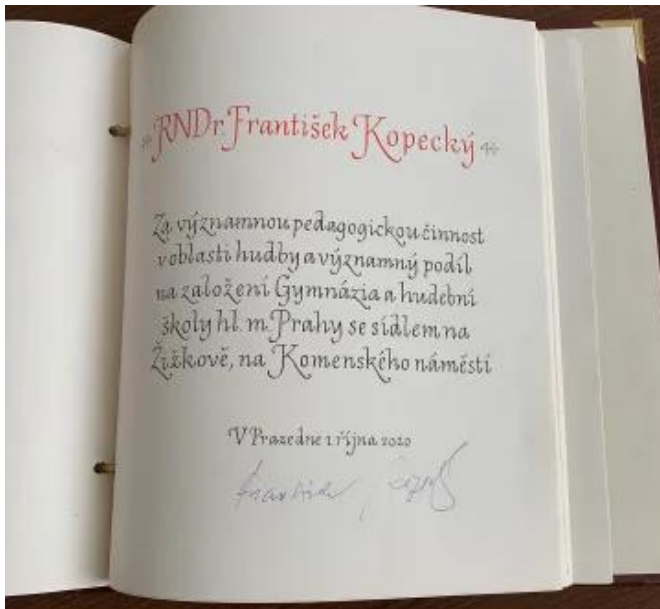 RNDr. František Kopecký
Za významnou pedagogickou činnost
v oblasti hudby a významný podíl
na založení Gymnázia a hudební
školy hl. m. Prahy se sídlem na
Žižkově, na Komenského náměstí
V Praze dne 1 října 2020
František